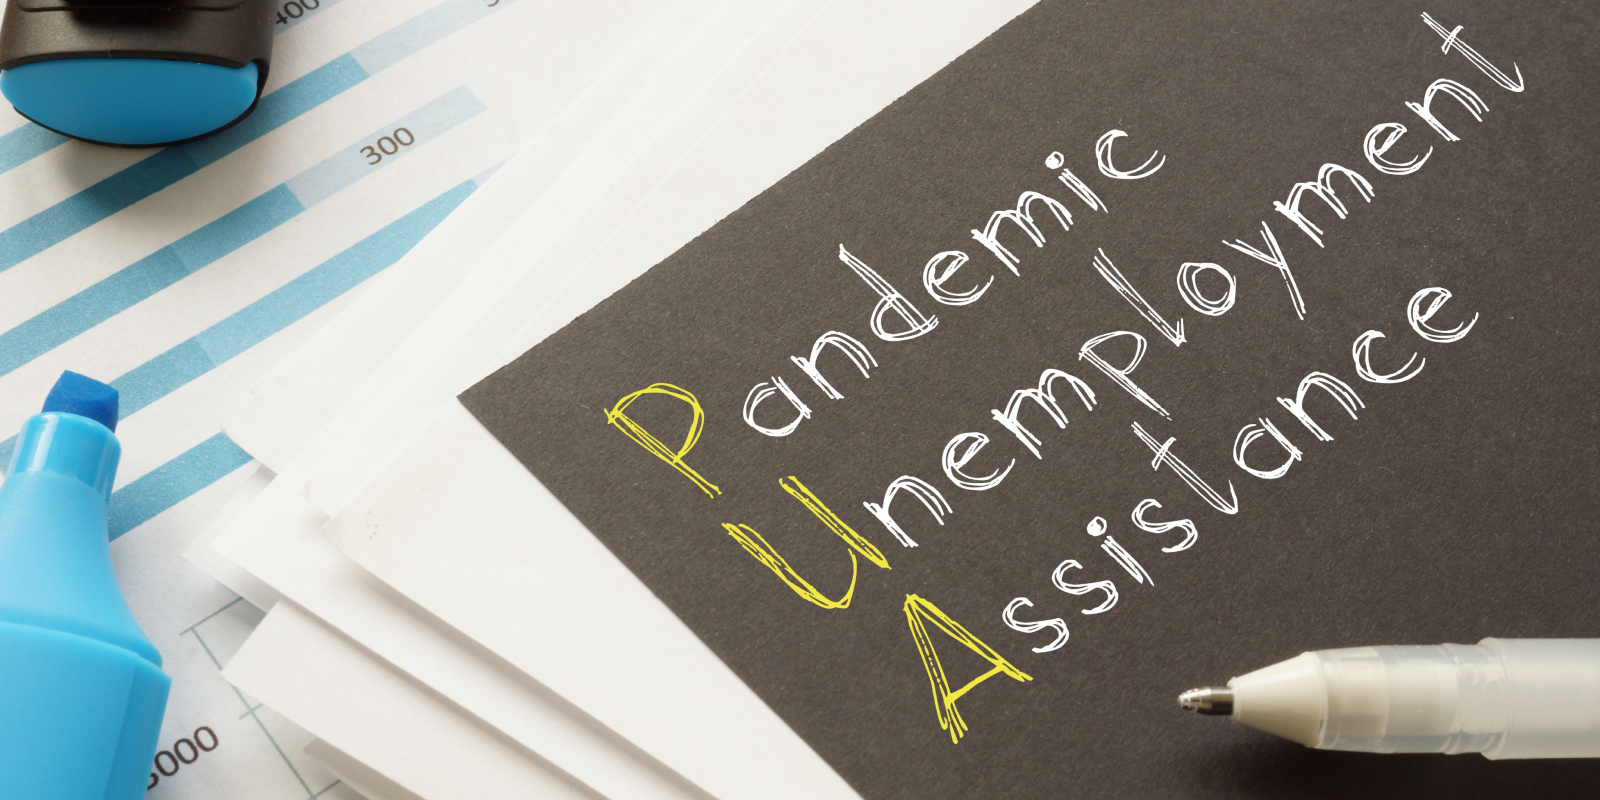 400
300
Pandemic
Unemployment
Assistance